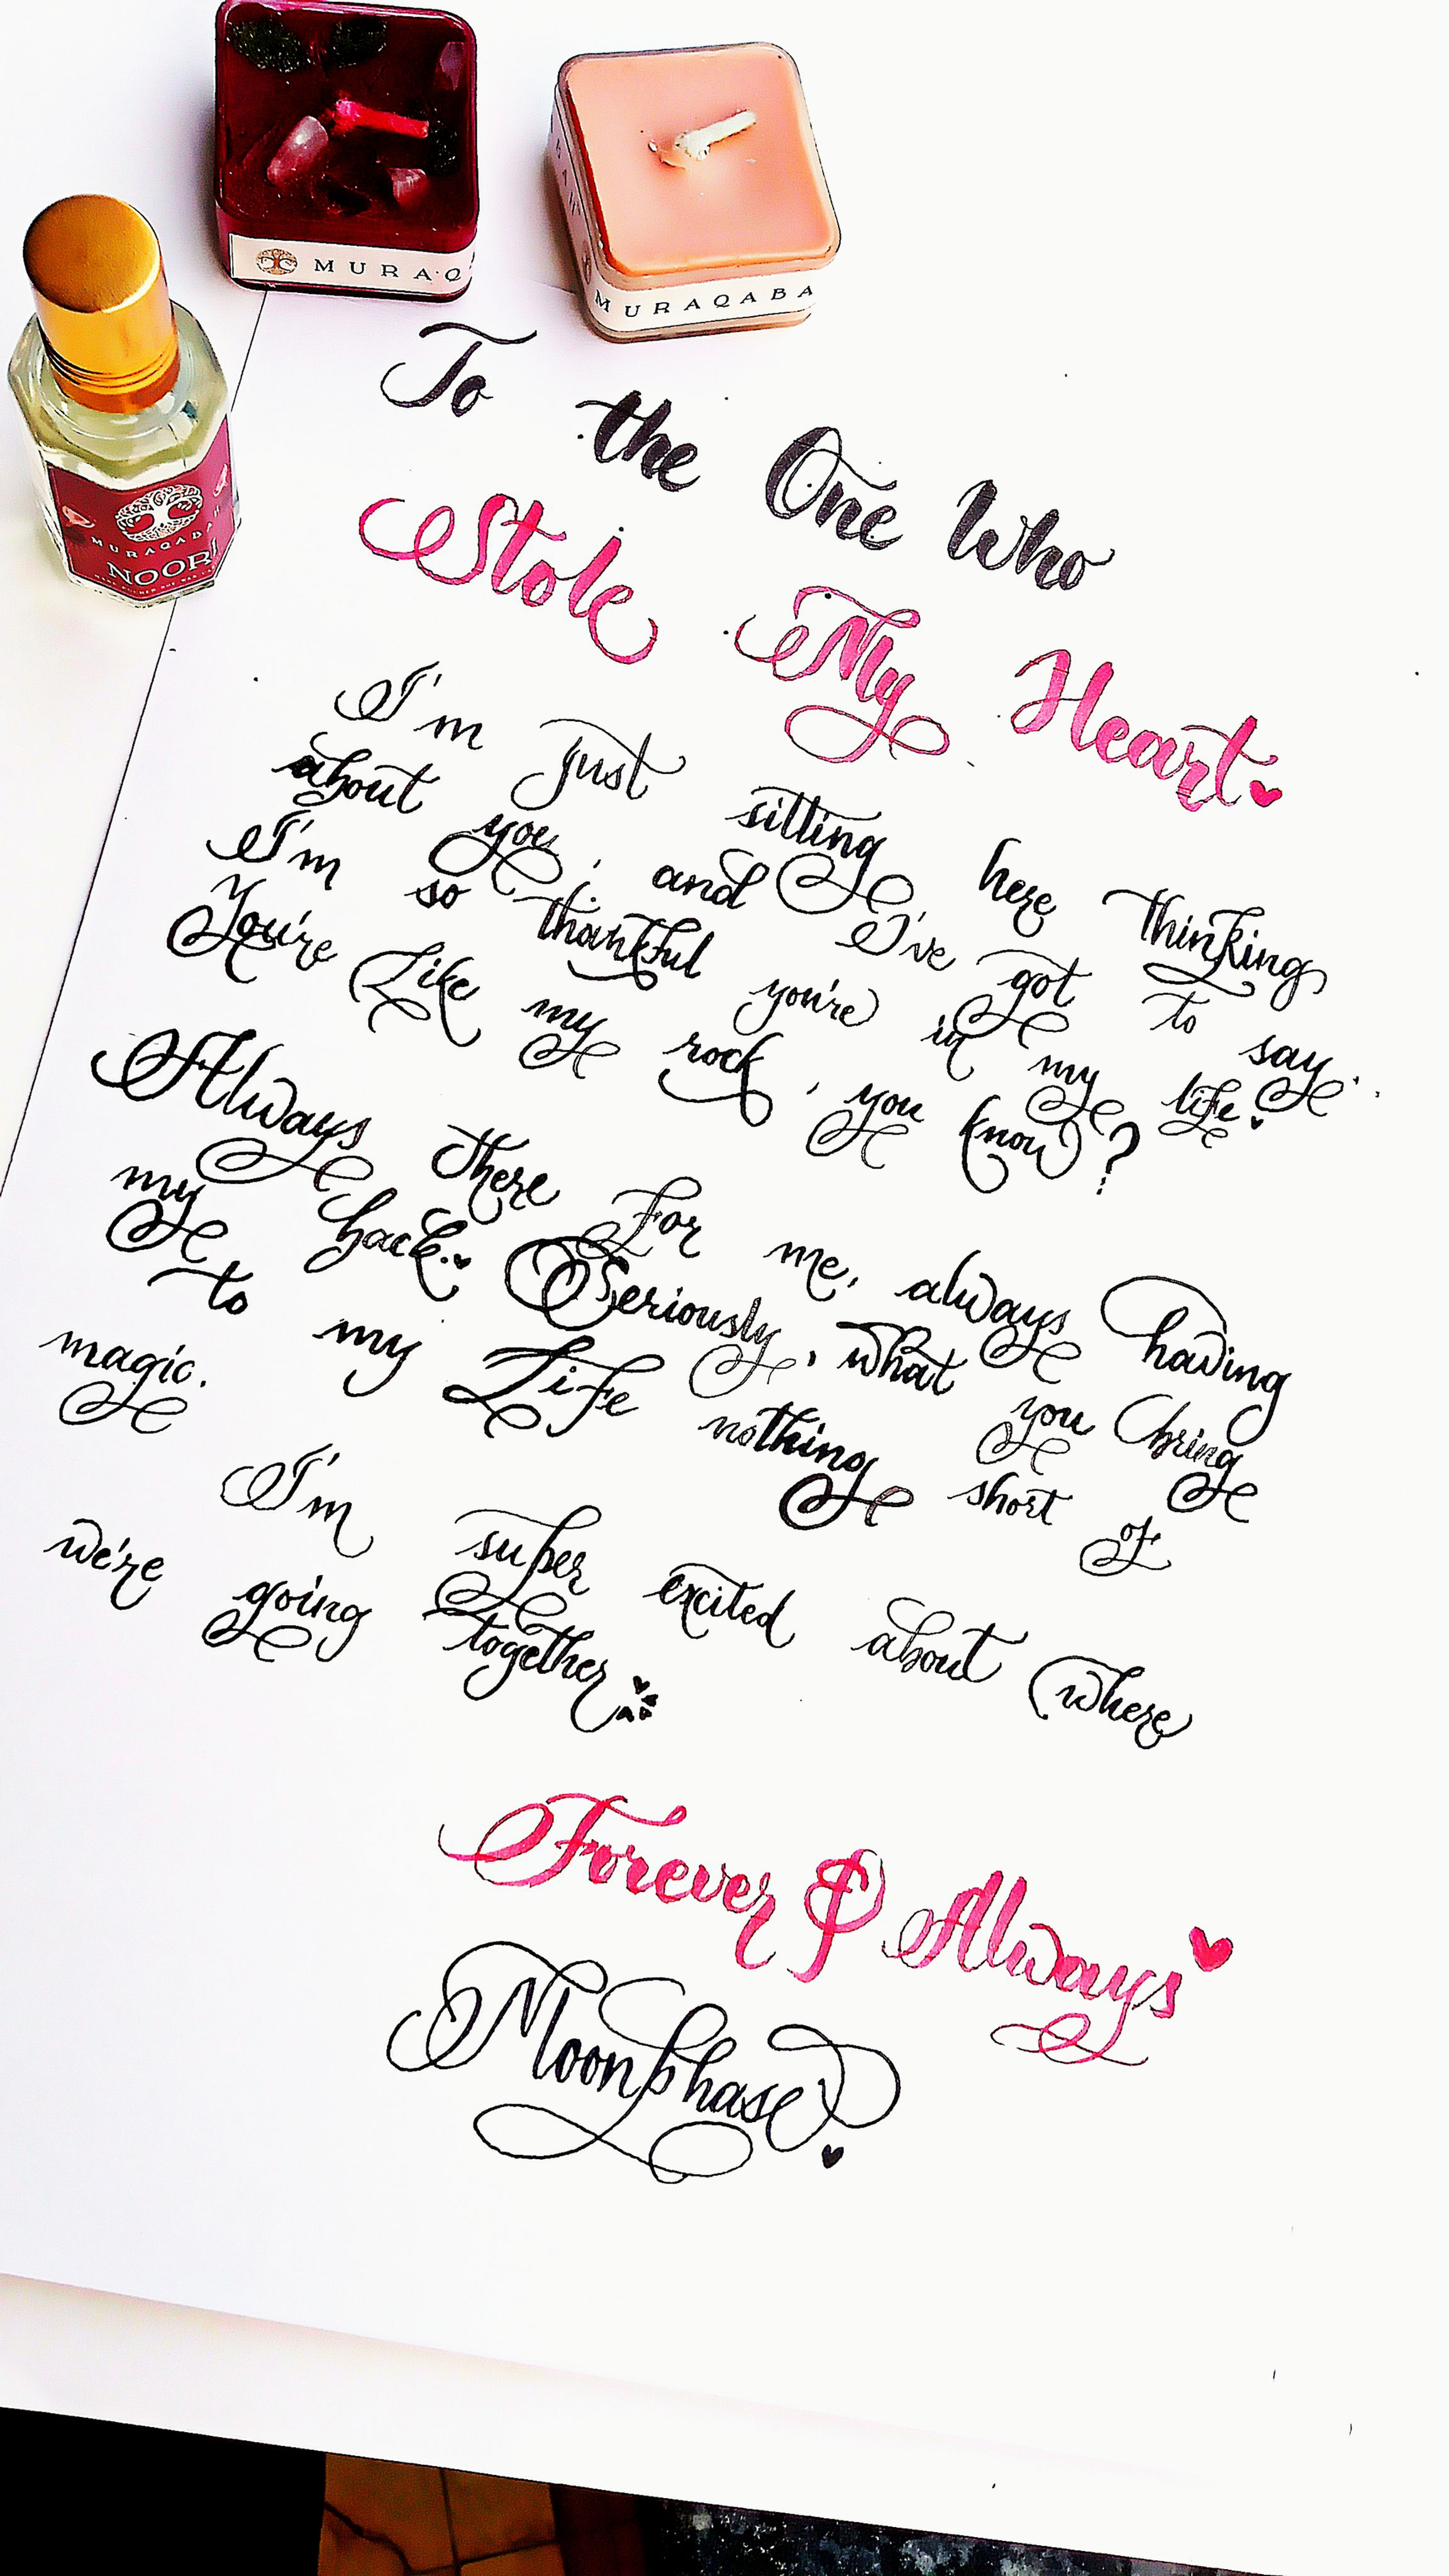 MURAQ
MURAQABA
MURAQABAH
NOORI
To the One Who
Stole My Heart
I'm just sitting here thinking
about you, and I've got to say.
I'm so thankful you're in my life.
You're Like my rock, you know?
Always there For me, always having
my back. Seriously, what you bring
to my Life nothing short of
magic.
I'm super excited about where
we're going together
Forever & Always
Moonphase